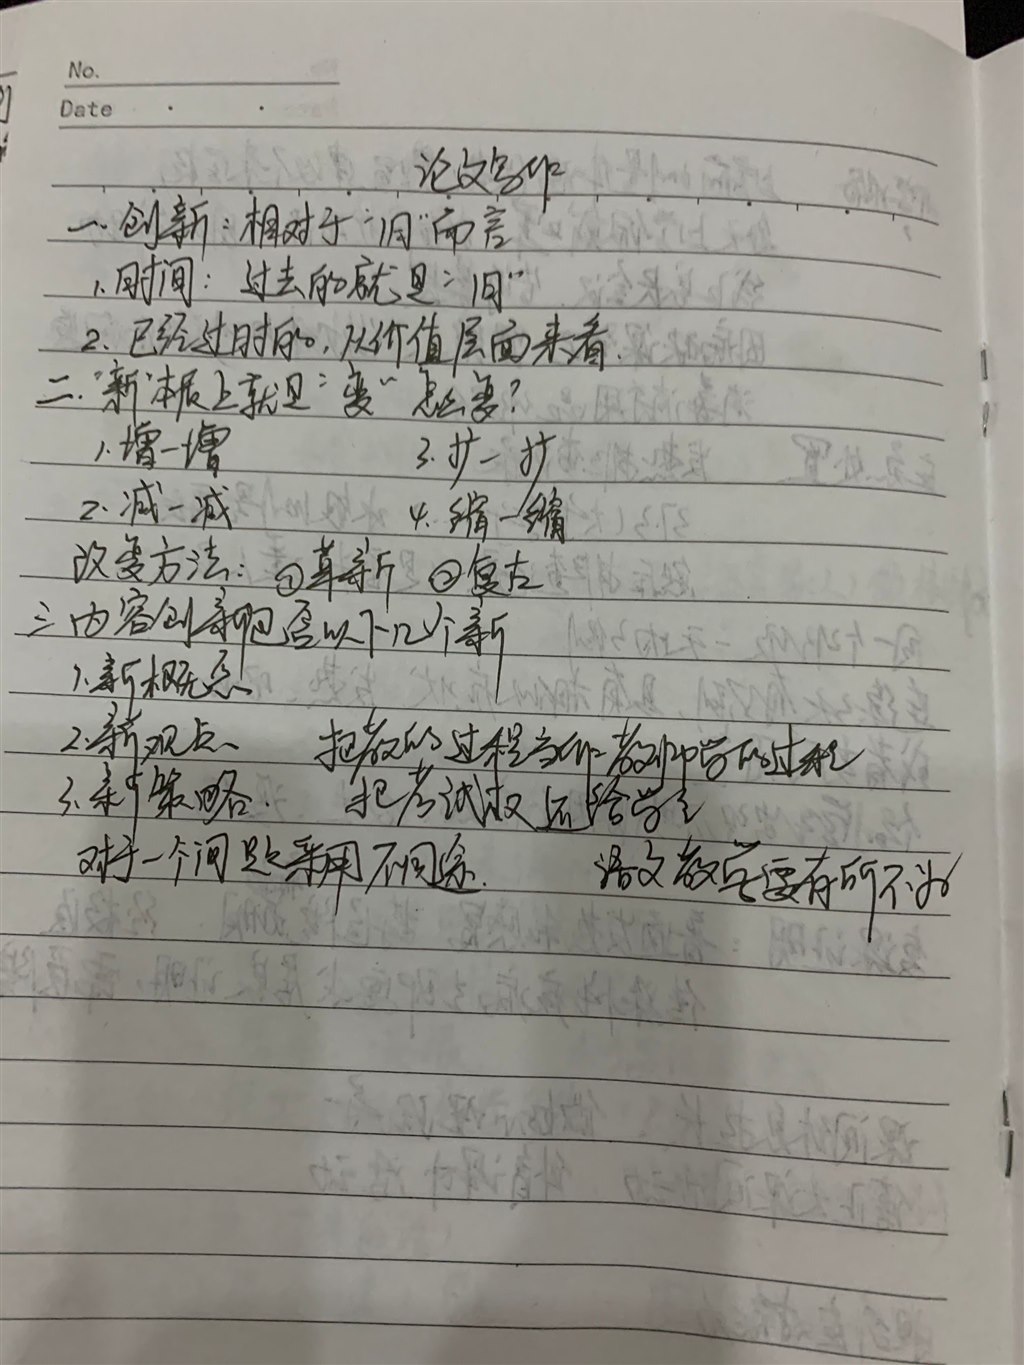 No.
Date
论文写作
一、创新：相对于“旧”而言
1.时间：过去的就是“旧”
2.已经过时的，从价值层面来看.
二.“新”本质上就是“变” 怎么变？
1.增一增 3.扩一扩
2.减一减 4.缩一缩
改变方法：①革新 ②复古
三 内容创新包含以下12个新
1.新概念
2.新观点 把教的过程当作教师学的过程
3.新策略. 把考试权还给学生
对于一个问题采用不同 语文教学要有所不为